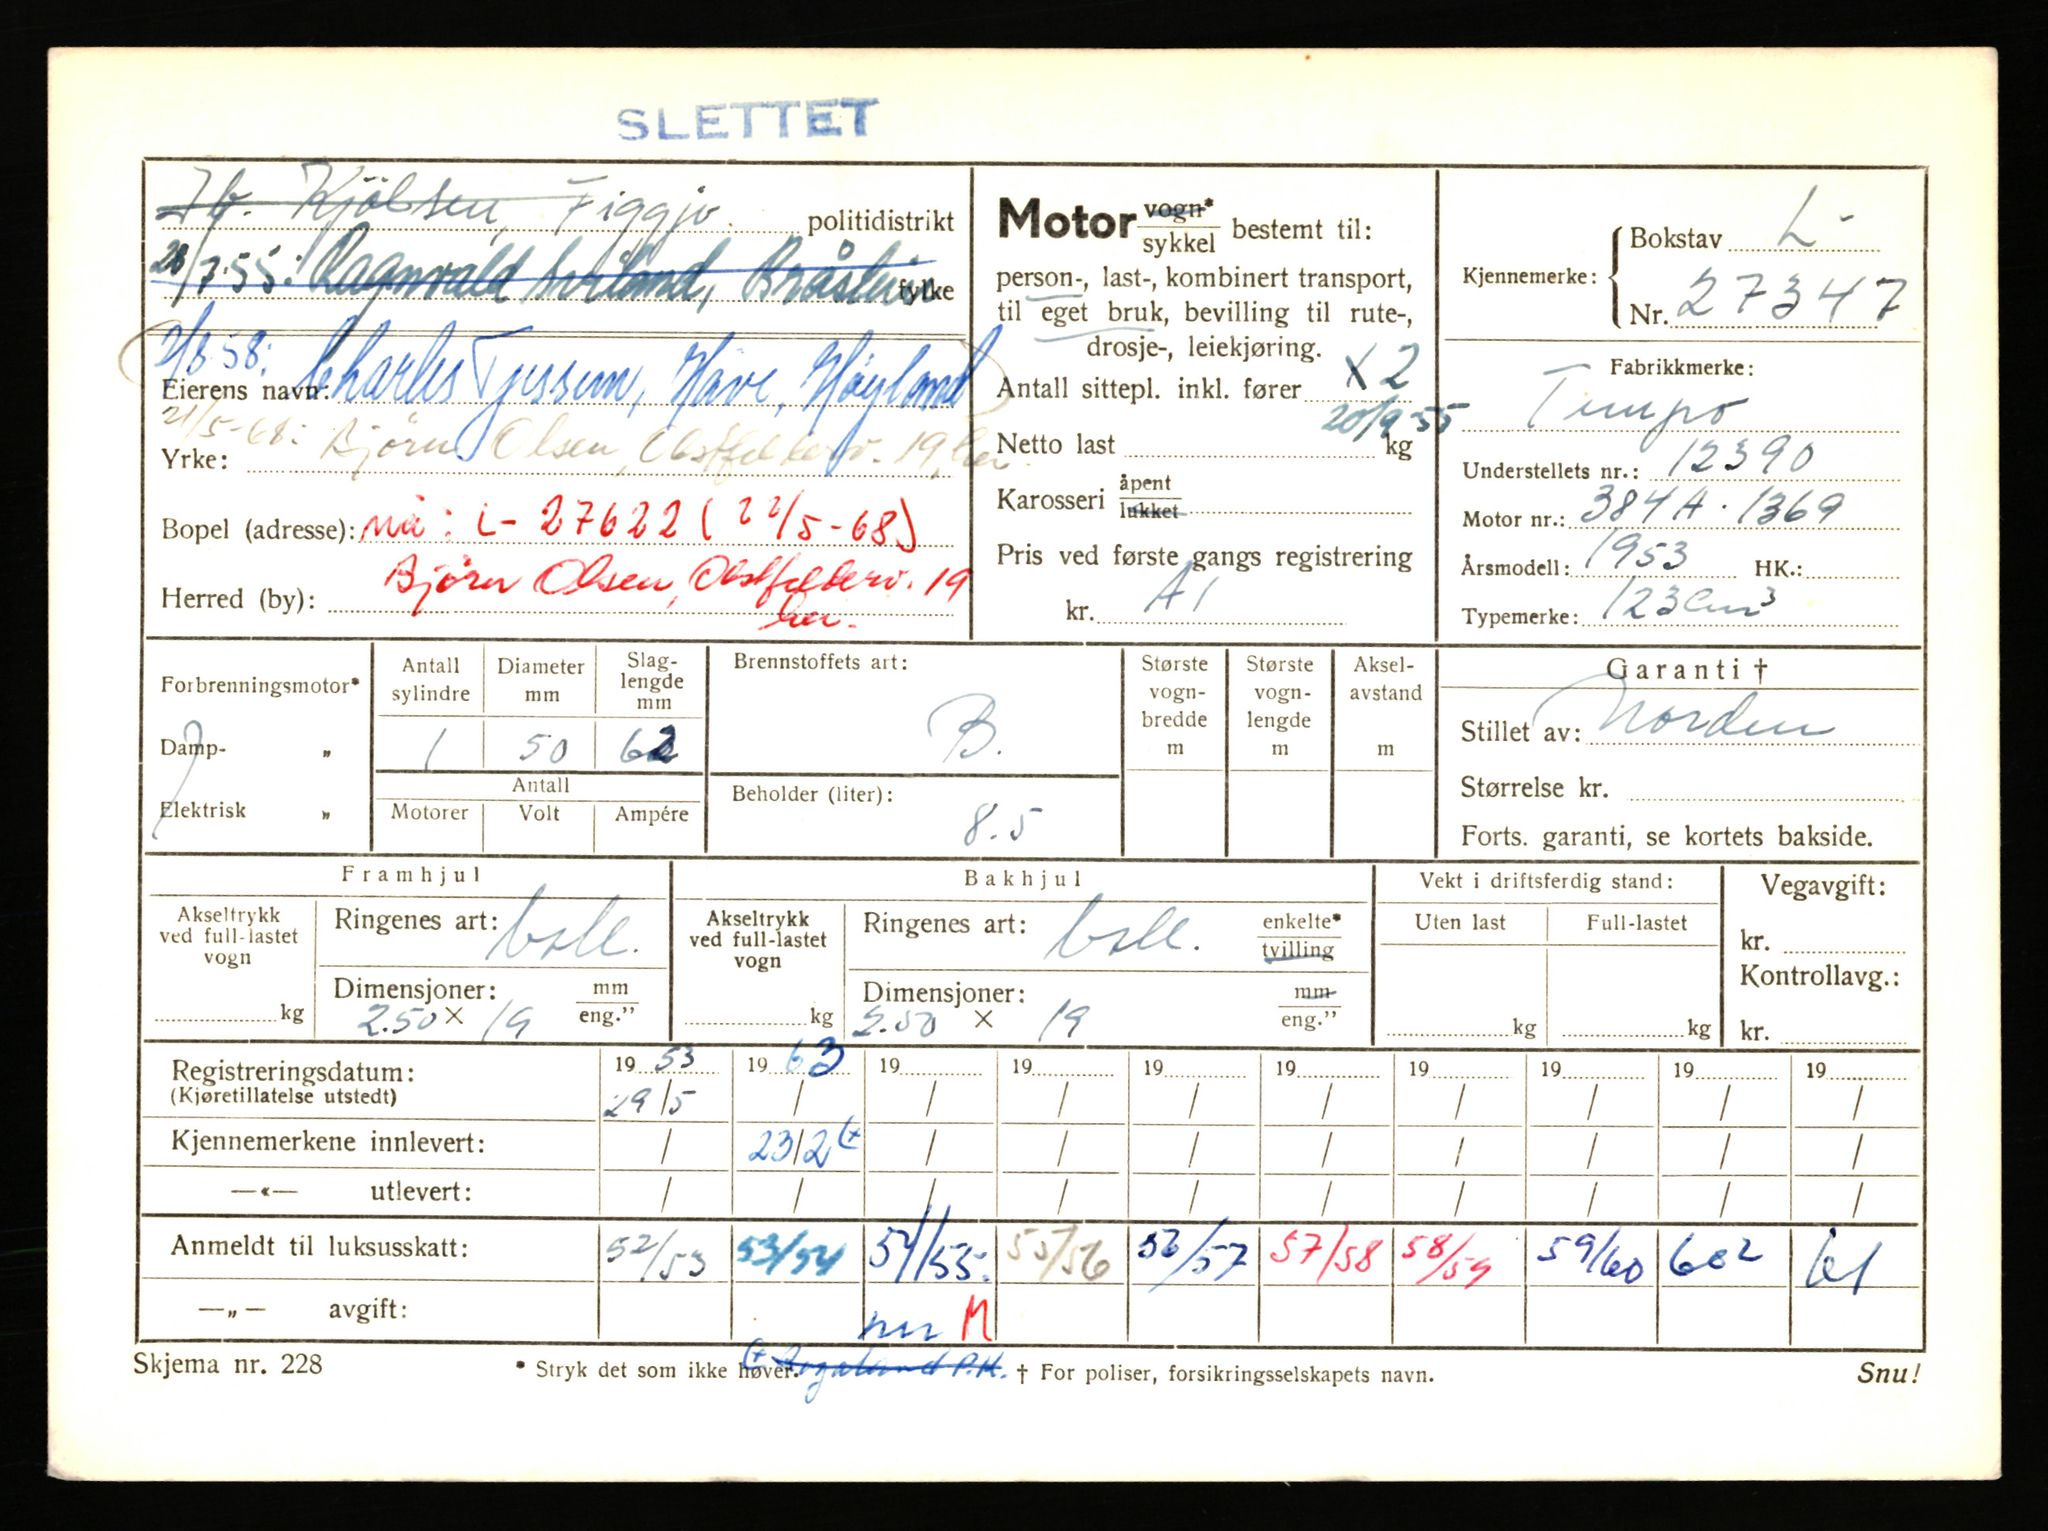 SLETTET
Kjölsen, Figgjo politidistrikt
/7.55: Ragnvald fylke
2/8.58: Charles Tjessem, Håve, Høyland
Eierens navn:
21/5-68: Bjørn Olsen, Obstfelderv. 19, her
Yrke:
Bopel (adresse): nå: L-27622 (22/5-68)
Bjørn Olsen, Obstfelderv. 19
Herred (by): her.
Motor vogn* / sykkel bestemt til:
person-, last-, kombinert transport,
til eget bruk, bevilling til rute-,
drosje-, leiekjøring.
Antall sittepl. inkl. fører X 2
20/9-55
Netto last kg
Karosseri åpent / lukket
Pris ved første gangs registrering
kr. A1
Kjennemerke: Bokstav L-
Nr. 27347
Fabrikkmerke:
Tempo
Understellets nr.: 12390
Motor nr.: 384A.1369
Årsmodell: 1953 HK.:
Typemerke: 123 Cm³
Forbrenningsmotor*
Damp- „
Elektrisk „
Antall sylindre Diameter mm Slag-lengde mm
1 50 62
Antall
Motorer Volt Ampére
Brennstoffets art:
B.
Beholder (liter):
8.5
Største vogn-bredde m
Største vogn-lengde m
Aksel-avstand m
Garanti †
Stillet av: Norden
Størrelse kr.
Forts. garanti, se kortets bakside.
Framhjul
Akseltrykk ved full-lastet vogn
kg
Ringenes art:
Dimensjoner: mm / eng."
2.50 x 19
Bakhjul
Akseltrykk ved full-lastet vogn
kg
Ringenes art: enkelte* / tvilling
Dimensjoner: mm / eng."
2.50 x 19
Vekt i driftsferdig stand:
Uten last Full-lastet
kg kg
Vegavgift:
kr.
Kontrollavg.:
kr.
Registreringsdatum: 19 53 19 63 19 19 19 19 19 19 19 19
(Kjøretillatelse utstedt) 29/5 / / / / / / / / /
Kjennemerkene innlevert: / 23/2 (+ / / / / / / / /
—«— utlevert: / / / / / / / / / /
Anmeldt til luksusskatt: 52/53 53/54 54/55. 55/56 56/57 57/58 58/59 59/60 602 61
—„— avgift: M
(+ Rogaland P.K.
Skjema nr. 228 * Stryk det som ikke høver. † For poliser, forsikringsselskapets navn. Snu!